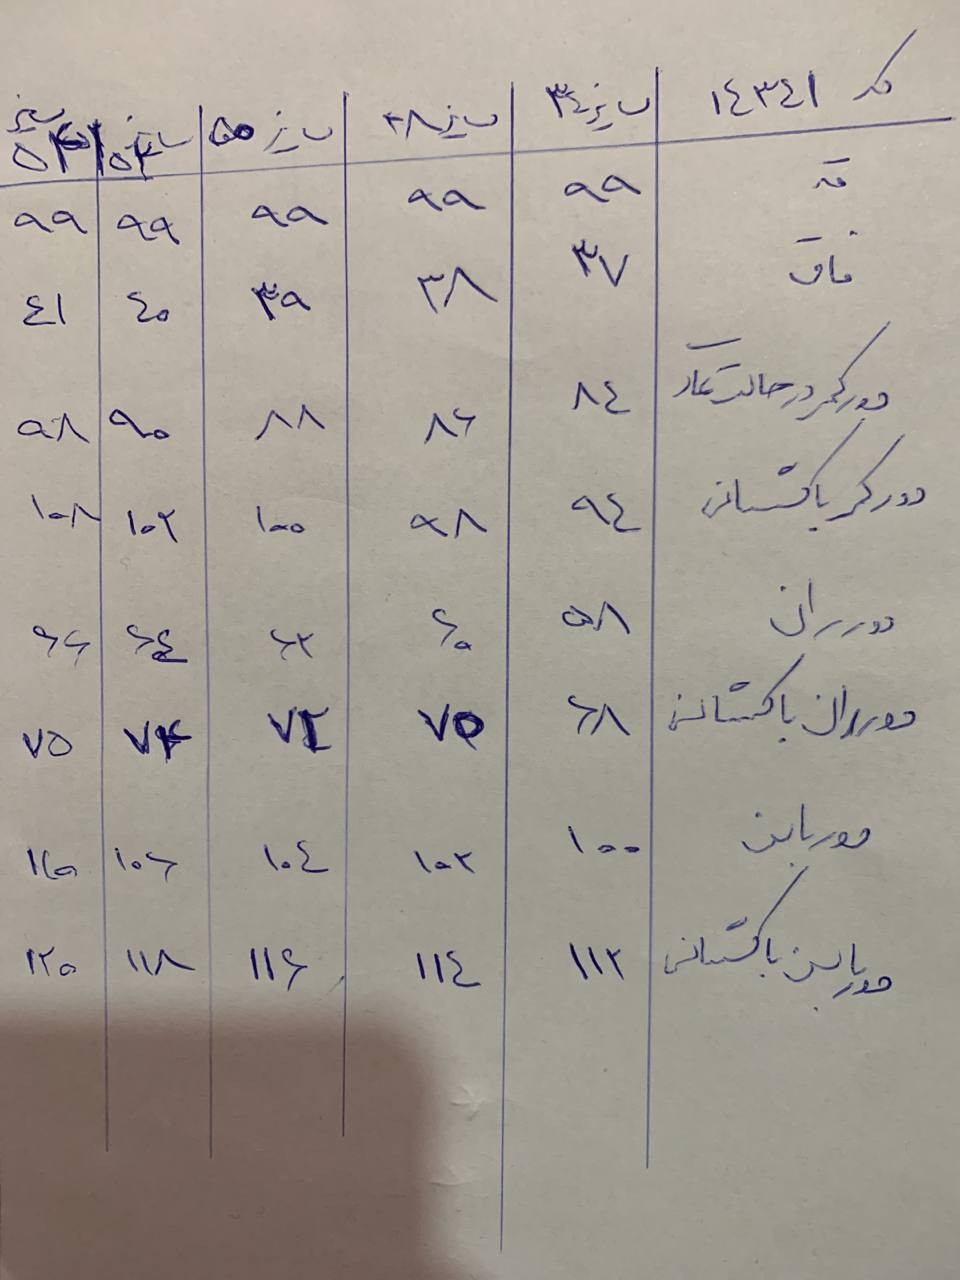 کد ۱٤۳٤۱ سایز ۳٤ سایز ۳۸ سایز ۵۰ سایز ۵۲ سایز ۵۴
قد ۹۹ ۹۹ ۹۹ ۹۹ ۹۹
فاق ۳۷ ۳۸ ۳۹ ٤۰ ٤۱
دور کمر در حالت عادی ۸٤ ۸۶ ۸۸ ۹۰ ۹۸
دور کمر با کشسانی ۹٤ ۹۸ ۱۰۰ ۱۰۲ ۱۰۸
دور ران ۵۸ ۶۰ ۶۲ ۶٤ ۶۶
دور ران با کشسانی ۶۸ ۷۵ ۷۲ ۷۴ ۷۵
دور باسن ۱۰۰ ۱۰۲ ۱۰٤ ۱۰۶
دور باسن با کشسانی ۱۱۲ ۱۱٤ ۱۱۶ ۱۱۸ ۱۲۰